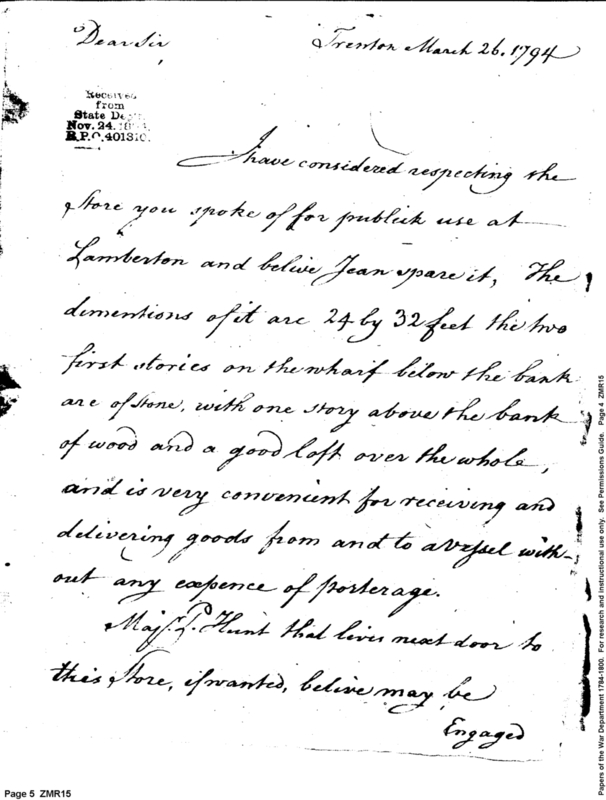 Dear Sir
Trenton March 26. 1794
Received
from
State Dept.
Nov. 24.
R.P.O. 401310.
I have considered respecting the
Store you spoke of for publick use at
Lamberton and belive I can spare it, The
dimentions of it are 24 by 32 feet the two
first stories on the wharf below the bank
are of Stone, with one story above the bank
of wood and a good loft over the whole,
and is very convenient for receiving and
delivering goods from and to a vessel with-
out any expence of porterage.
Majr. P. Hunt that lives next door to
this Store, if wanted, belive may be
Engaged
Page 5 ZMR15
Papers of the War Department 1784-1800. For research and instructional use only. See Permissions Guide. Page 4 ZMR15